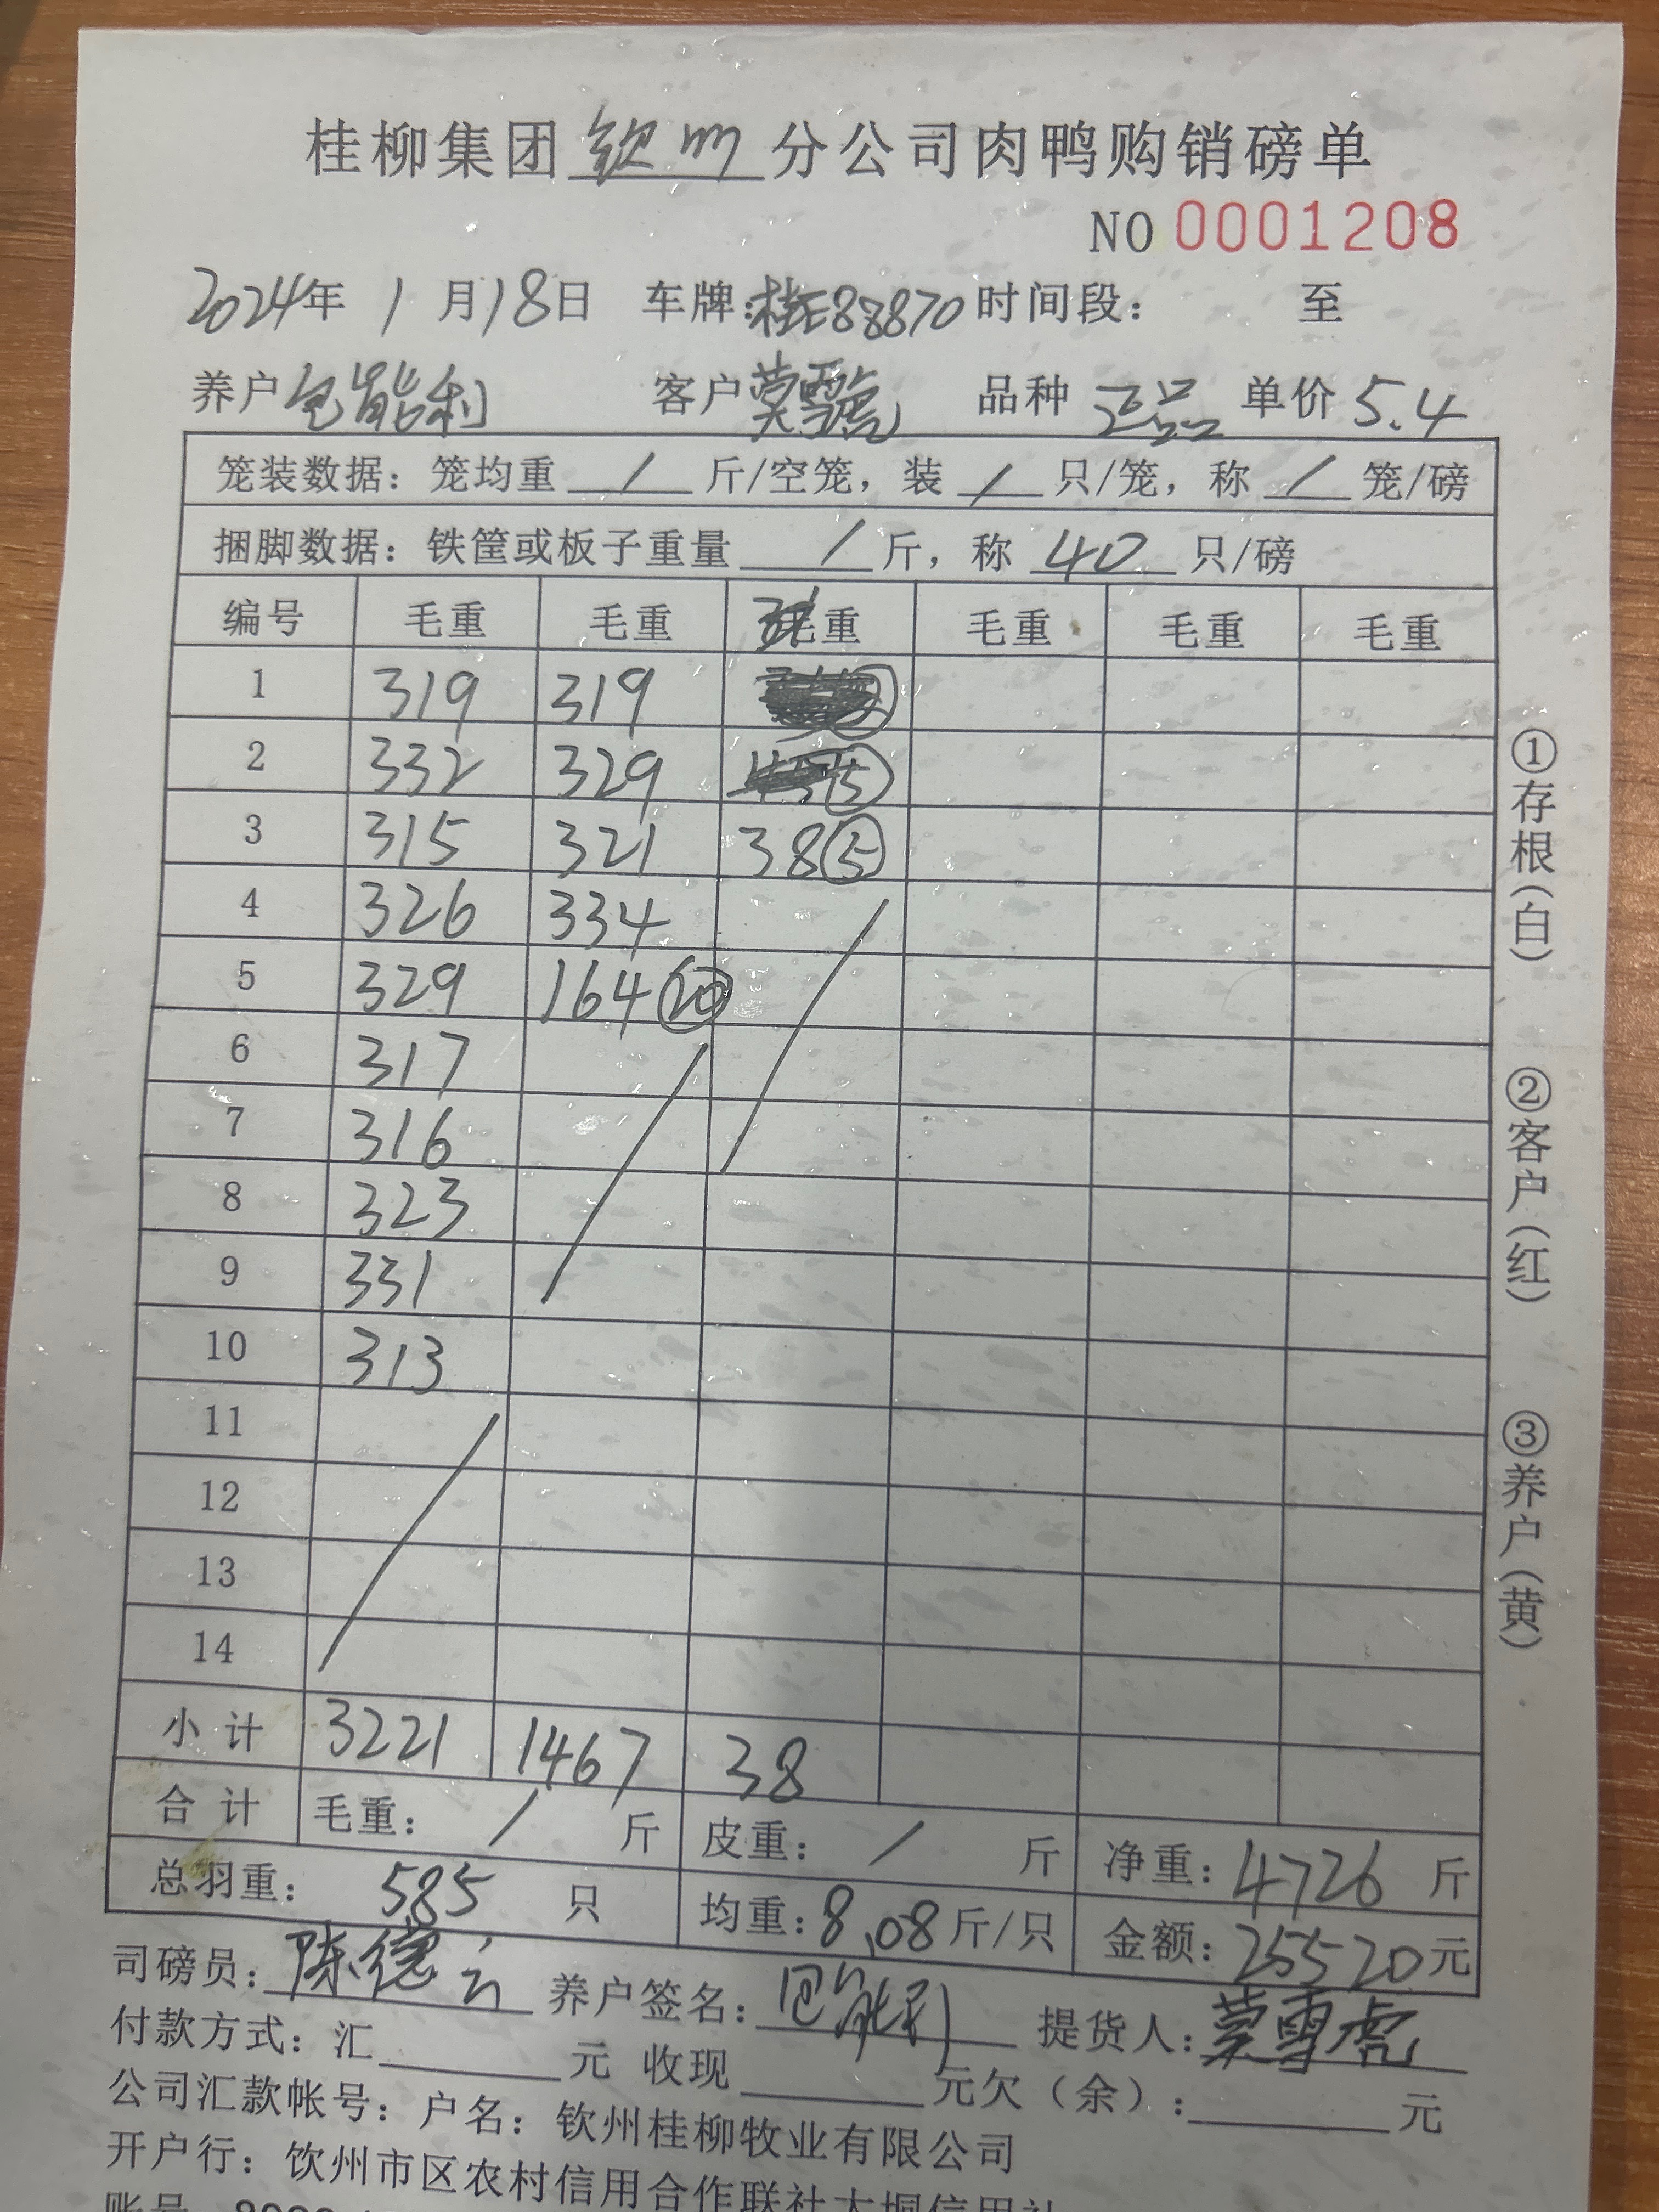 桂柳集团钦州分公司肉鸭购销磅单
NO 0001208
2024年 1月18日 车牌:桂E88870 时间段: 至
养户 包能利 客户 蒙雪虎 品种 正品 单价 5.4
笼装数据:笼均重 / 斤/空笼,装 / 只/笼,称 / 笼/磅
捆脚数据:铁筐或板子重量 / 斤,称 40 只/磅
编号 毛重 毛重 毛重 毛重 毛重 毛重
1 319 319
2 332 329 ⑤
3 315 321 38⑤
4 326 334
5 329 164⑳
6 317
7 316
8 323
9 331
10 313
11
12
13
14
小计 3221 1467 38
合计 毛重: / 斤 皮重: / 斤 净重:4726 斤
总羽重: 585 只 均重:8.08斤/只 金额:25520元
司磅员:陈德云 养户签名:包能利 提货人:蒙雪虎
付款方式:汇 元 收现 元欠(余): 元
公司汇款帐号:户名:钦州桂柳牧业有限公司
开户行:饮州市区农村信用合作联社大垌信用社
账号
①存根(白)
②客户(红)
③养户(黄)